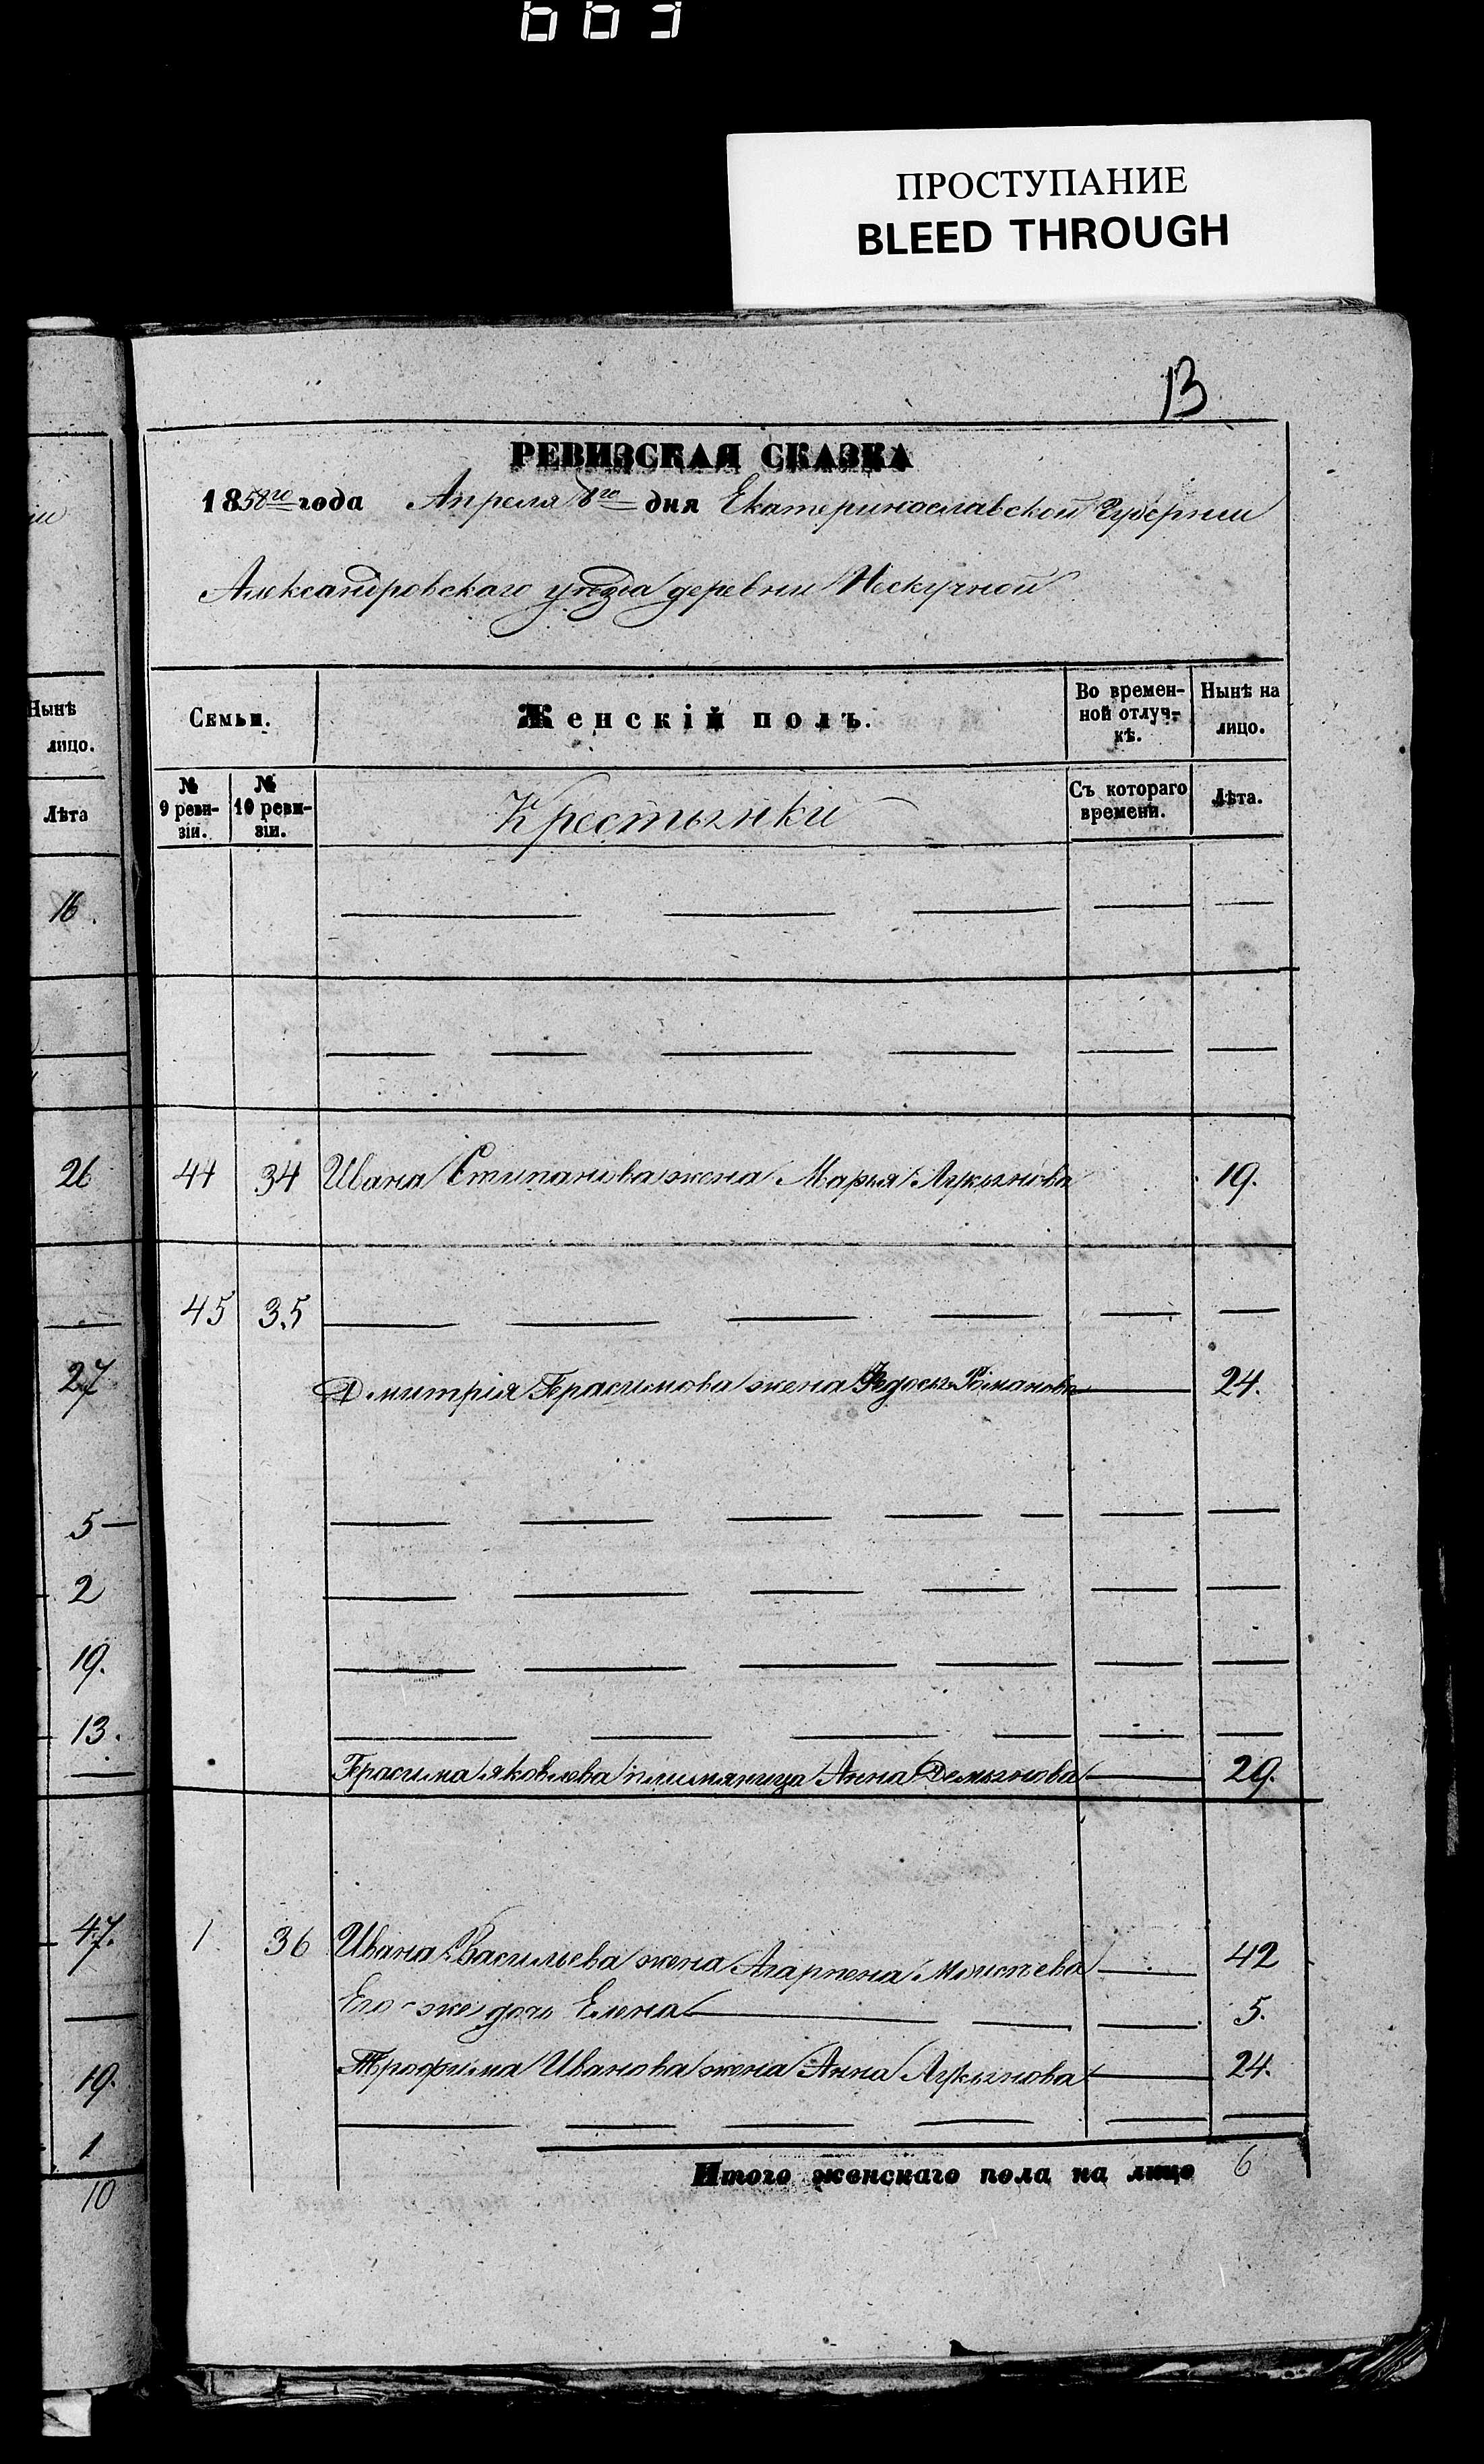 ПРОСТУПАНИЕ
BLEED THROUGH
13
РЕВИЗСКАЯ СКАЗКА
1858го года Апреля 8го дня Екатеринославской Губернии
Александровскаго уѣзда деревни Нескучной
Нынѣ
лицо.
Лѣта
Семьи.
Женскій полъ.
Во времен-
ной отлуч-
кѣ.
Нынѣ на
лицо.
№
9 реви-
зіи.
№
10 реви-
зіи.
Крестьянки
Съ котораго
времени.
Лѣта.
16.
26 44 34 Ивана Стипанова жена Марья Лукьянова 19.
45 35
27 Дмитрія Герасимова жена Федосья Романова 24.
5
2
19.
13.
Герасима Яковлева племяница Анна Демьянова 29.
47. 1 36 Ивана Васильева жена Агарпена Моисѣева 42
Его-же дочь Елена 5.
19. Трофима Иванова жена Анна Лукьянова 24.
1
Итого женскаго пола на лицо 6
10